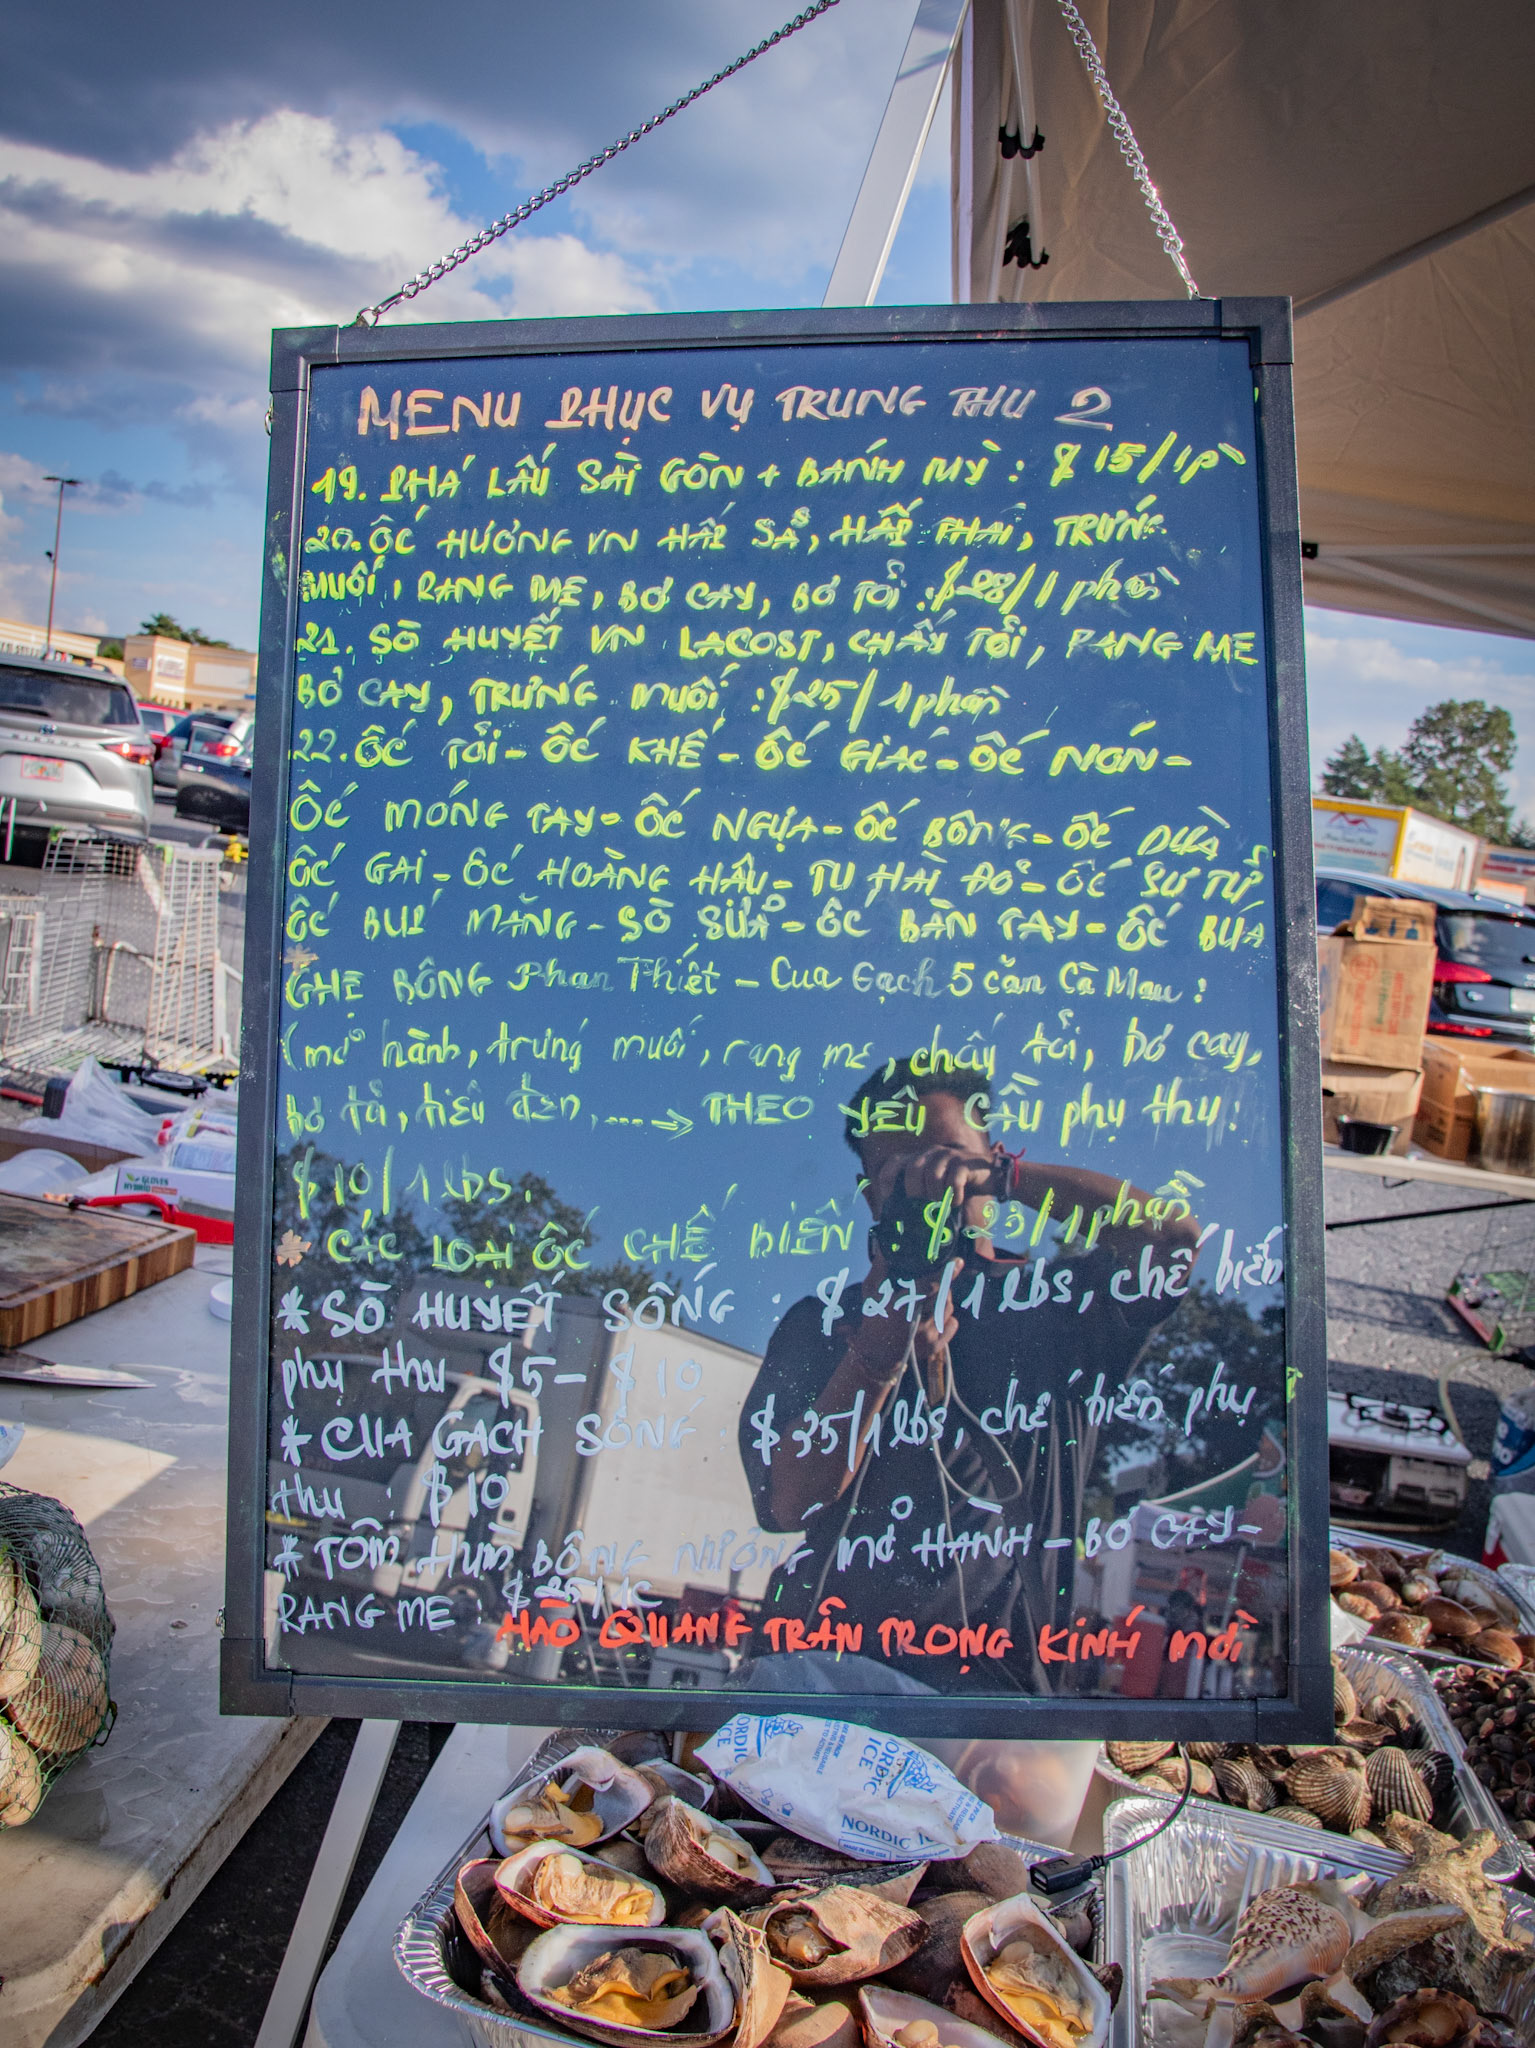 MENU PHỤC VỤ TRUNG THU 2
19. PHÁ LẤU SÀI GÒN + BÁNH MỲ : $15/1P
20. ỐC HƯƠNG VN HẤP SẢ, HẤP THÁI, TRỨNG
MUỐI, RANG ME, BƠ CAY, BƠ TỎI : $28/1 phần
21. SÒ HUYẾT VN LACOST, CHÁY TỎI, RANG ME
BƠ CAY, TRỨNG MUỐI : $25/1 phần
22. ỐC TỎI - ỐC KHẾ - ỐC GIÁC - ỐC NÓN -
ỐC MÓNG TAY - ỐC NGỰA - ỐC BÔNG - ỐC DỪA
ỐC GAI - ỐC HOÀNG HẬU - TU HÀI ĐỎ - ỐC SƯ TỬ
ỐC BÚP MĂNG - SÒ SỮA - ỐC BÀN TAY - ỐC BÚA
GHẸ BÔNG Phan Thiết - Cua Gạch 5 căn Cà Mau :
(mỡ hành, trứng muối, rang me, cháy tỏi, bơ cay,
bơ tỏi, tiêu đen, ....→ THEO YÊU CẦU phụ thu :
$10/1 lbs.
* CÁC LOẠI ỐC CHẾ BIẾN : $23/1 phần
* SÒ HUYẾT SỐNG : $27/1 lbs, chế biến
phụ thu $5 - $10
* CUA GẠCH SỐNG : $35/1 lbs, chế biến phụ
thu : $10
* TÔM HÙM BÔNG NƯỚNG MỠ HÀNH - BƠ CAY -
RANG ME :
HÀO QUANG TRÂN TRỌNG KÍNH MỜI
GLOVES
HYBRID
NORDIC
ICE
NORDIC
ICE
NORDIC